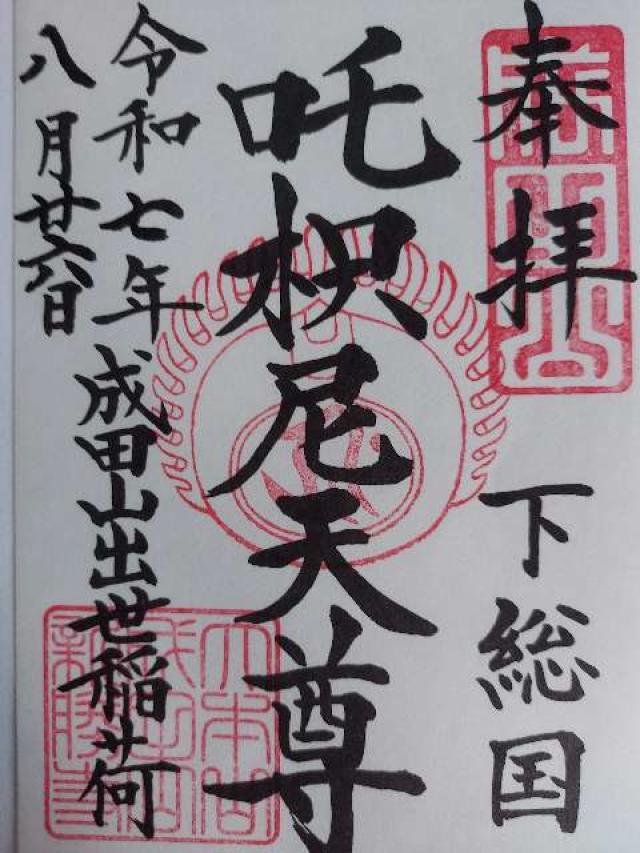 奉拝
下総国
吒枳尼天尊
令和七年
成田山出世稲荷
八月廿六日